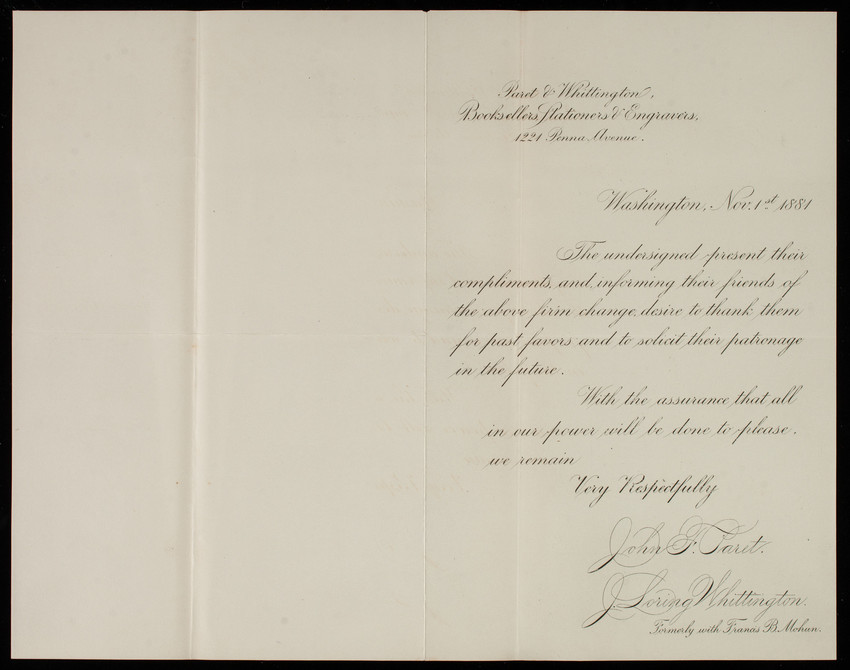 Paret & Whittington,
Booksellers, Stationers & Engravers.
1221 Penna Avenue.
Washington, Nov. 1st 1881
The undersigned present their
compliments, and, informing their friends of
the above firm change, desire to thank them
for past favors and to solicit their patronage
in the future.
With the assurance that all
in our power will be done to please.
we remain
Very Respectfully
John F. Paret.
J. Loring Whittington.
Formerly with Francis B. Mohun.